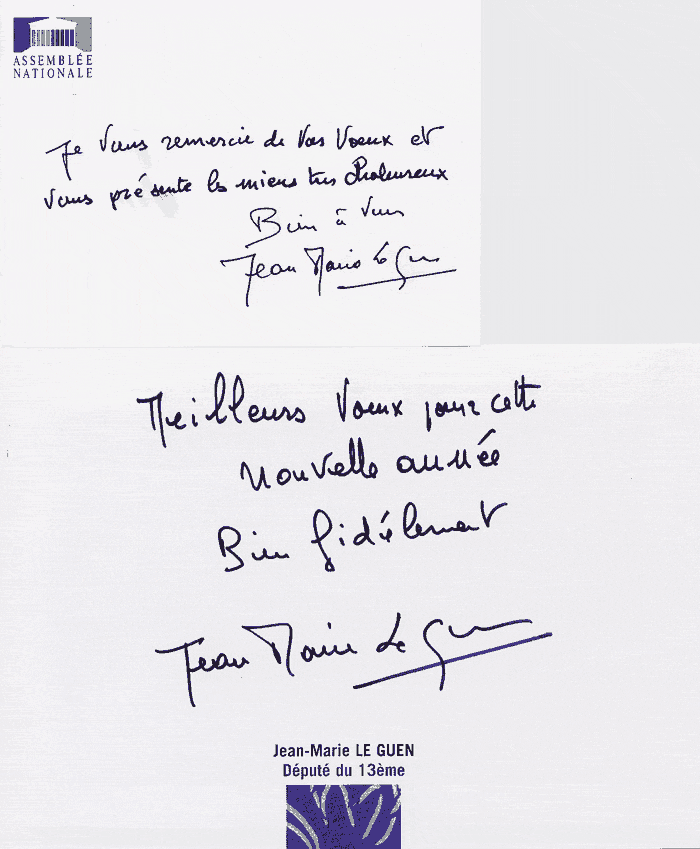 ASSEMBLÉE
NATIONALE
Je vous remercie de vos voeux et
vous présente les miens très chaleureux
Bien à vous
Jean Marie Le Guen
Meilleurs voeux pour cette
nouvelle année
Bien fidèlement
Jean Marie Le Guen
Jean-Marie LE GUEN
Député du 13ème